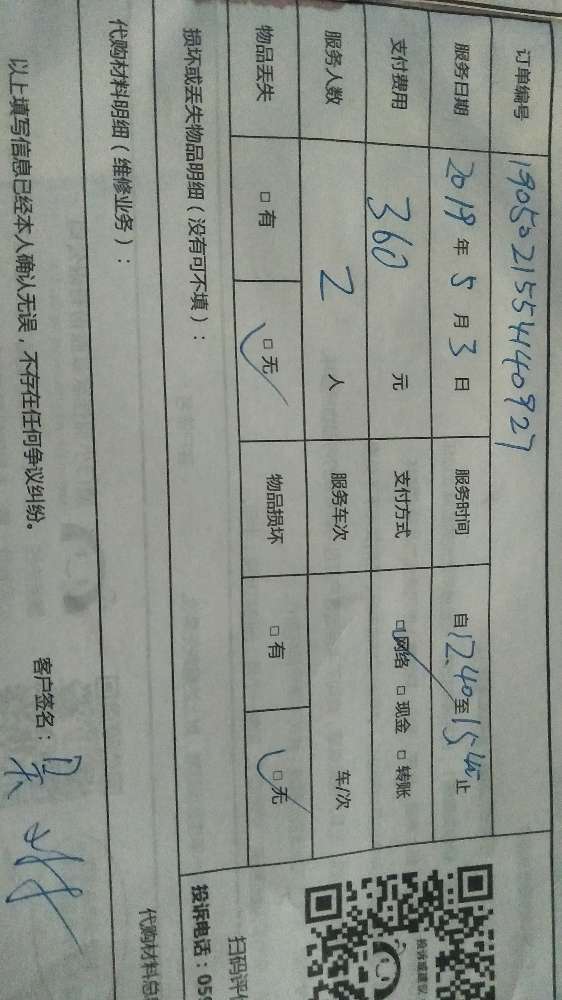 订单编号 190502155440927
服务日期 2019 年 5 月 3 日 服务时间 自 12.40 至 15.40 止
支付费用 360 元 支付方式 □网络 □现金 □转账
服务人数 2 人 服务车次 车/次
物品丢失 □有 □无 物品损坏 □有 □无
损坏或丢失物品明细（没有可不填）：
代购材料明细（维修业务）：
以上填写信息已经本人确认无误，不存在任何争议纠纷。
客户签名：
投诉或建议
扫码评价
投诉电话：059
代购材料总